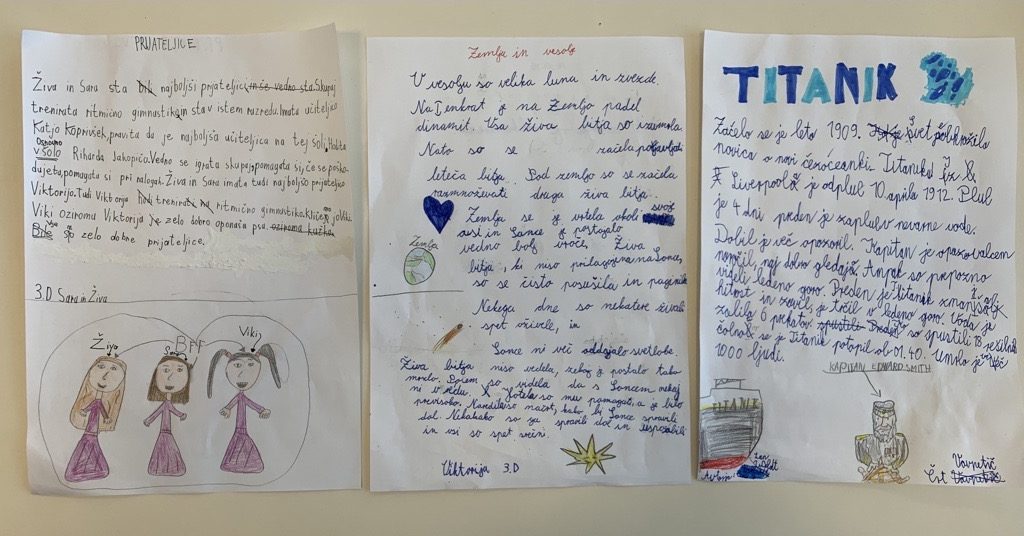 PRIJATELJICE
Živa in Sara sta bili najboljši prijateljici, in še vedno sta. Skupaj
trenirata ritmično gimnastiko, in sta v istem razredu. Imata učiteljico
Katjo Koprivšek, pravita da je najboljša učiteljica na tej šoli. Hodita
Osnovno
v šolo Riharda Jakopiča. Vedno se igrata skupaj, pomagata si, če se poško-
dujeta, pomagata si pri nalogah. Živa in Sara imata tudi najboljšo prijateljico
Viktorijo. Tudi Viktorija trenira ritmično gimnastiko. Kličejo jo Viki.
Viki oziroma Viktorija že zelo dobro oponaša psa. oziroma kužka.
Bile so zelo dobre prijateljice.
3.D Sara in Živa
Živa Sara BFF Viki
Zemlja in vesolje
V vesolju so velika luna in zvezde.
Na Zemljo padel
dinamit. Vsa živa bitja so izumrla.
Nato so se začela pojavljati
leteča bitja. Pod zemljo so se začela
razmnoževati draga živa bitja.
Zemlja se je vrtela okoli svoje
osi in Sonce je postajalo
vedno bolj vroče. Živa
bitja, ki niso prilagojena na Sonce,
so se čisto posušila in poginila
Zemlja
Nekega dne so nekatere živali
spet oživele, in
Sonce ni več oddajalo svetlobe.
Živa bitja niso vedela, zakaj je postalo tako
mrzlo. Potem so videla da s Soncem nekaj
ni v redu. Hotela so mu pomagat, a je bilo
previsoko. Naredila so načrt, kako bi Sonce spravili
dol. Nekako so ga spravili dol in usposobili
in vsi so spet srečni.
Viktorija 3.D
TITANIK
Začelo se je leto 1909. Svet je obkrožila
novica o novi čezoceanki. Titanik. Iz
Liverpoola je odplul 10. aprila 1912. Plul
je 4 dni preden je zaplul v nevarne vode.
Dobil je več opozoril. Kapitan je opazovalcem
naročil, naj dobro gledajo. Ampak so prepozno
videli ledeno goro. Preden je Titanik zmanjšal
hitrost in zavil, je trčil v ledeno goro. Voda je
zalila 6 prekatov. so spustili 18 rešilnih
čolnov, se je Titanik potopil ob 01.40. Umrlo je več
1000 ljudi.
KAPITAN EDWARD SMITH
TITANIK
Vovpotič
Črt